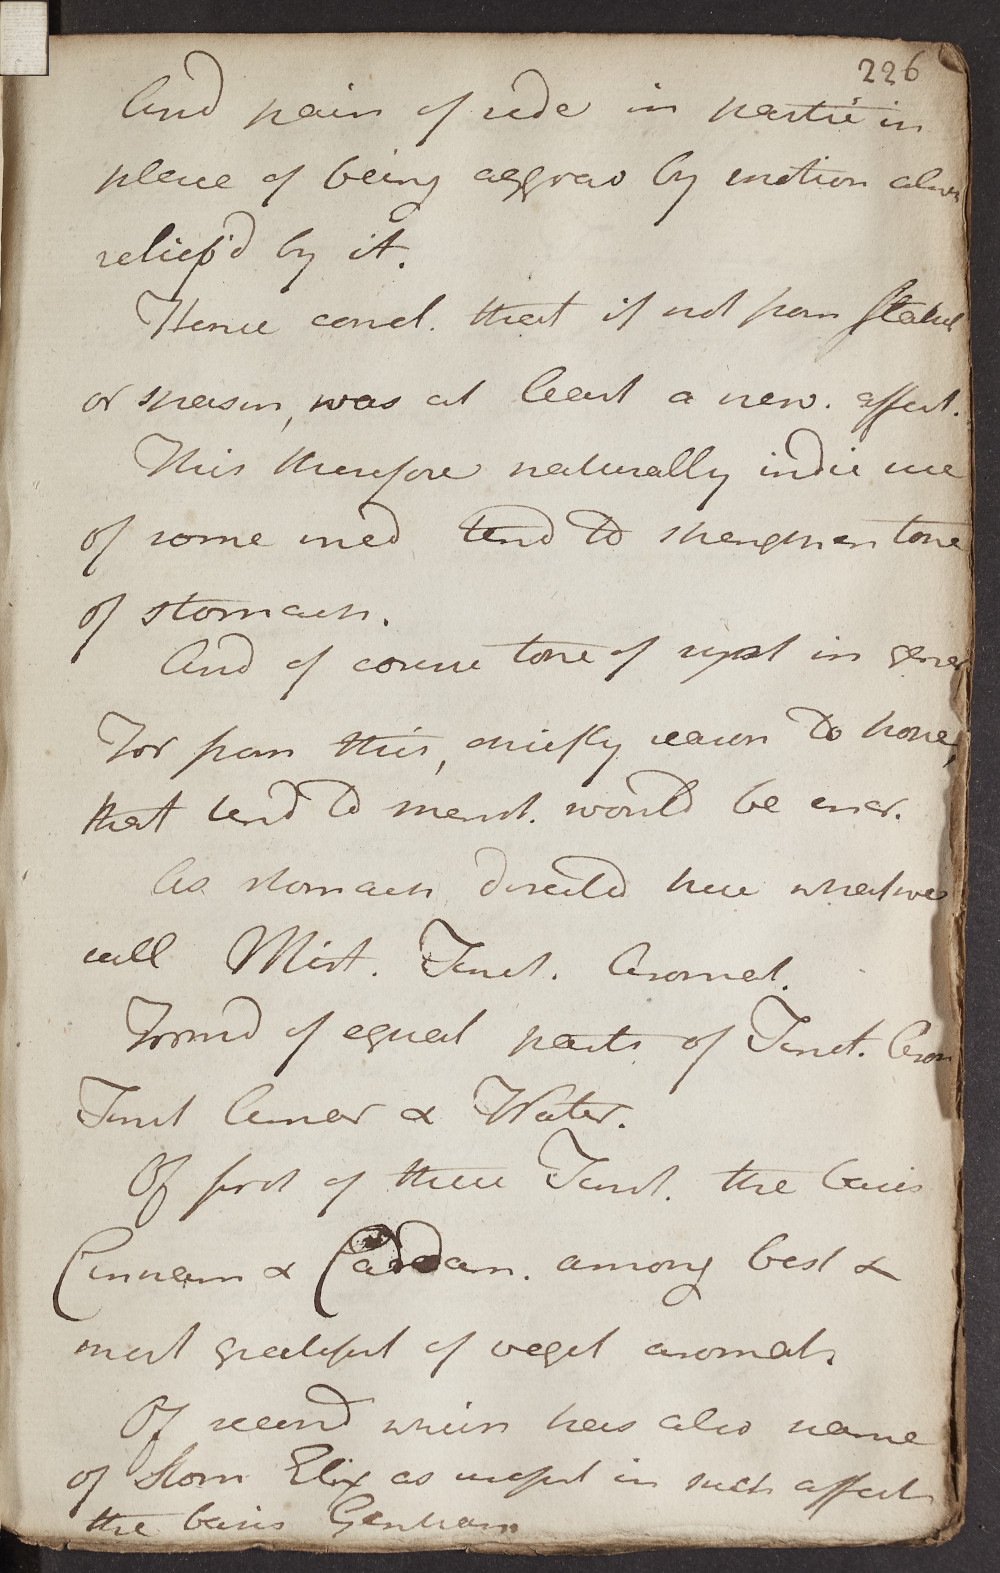 226
And pain of side in partic in
place of being aggrav by motion alwa
reliev'd by it.
Hence concl. that if not from flatul
or spasm, was at least a nerv. affect.
This therefore naturally indic use
of some med tend to strengthen tone
of stomach.
And of course tone of syst in gener
For from this, chiefly reason to hope,
that tend to menst. would be incr.
As stomach directed here what we
call Mist. Tinct. Aromat.
Formd of equal parts of Tinct. Arom
Tinct Amar & Water.
Of first of these Tinct. the basis
Cinnam & Cardam. among best &
most grateful of veget aromats.
Of second which has also name
of Stom Elix as useful in such affect
the basis Gentian